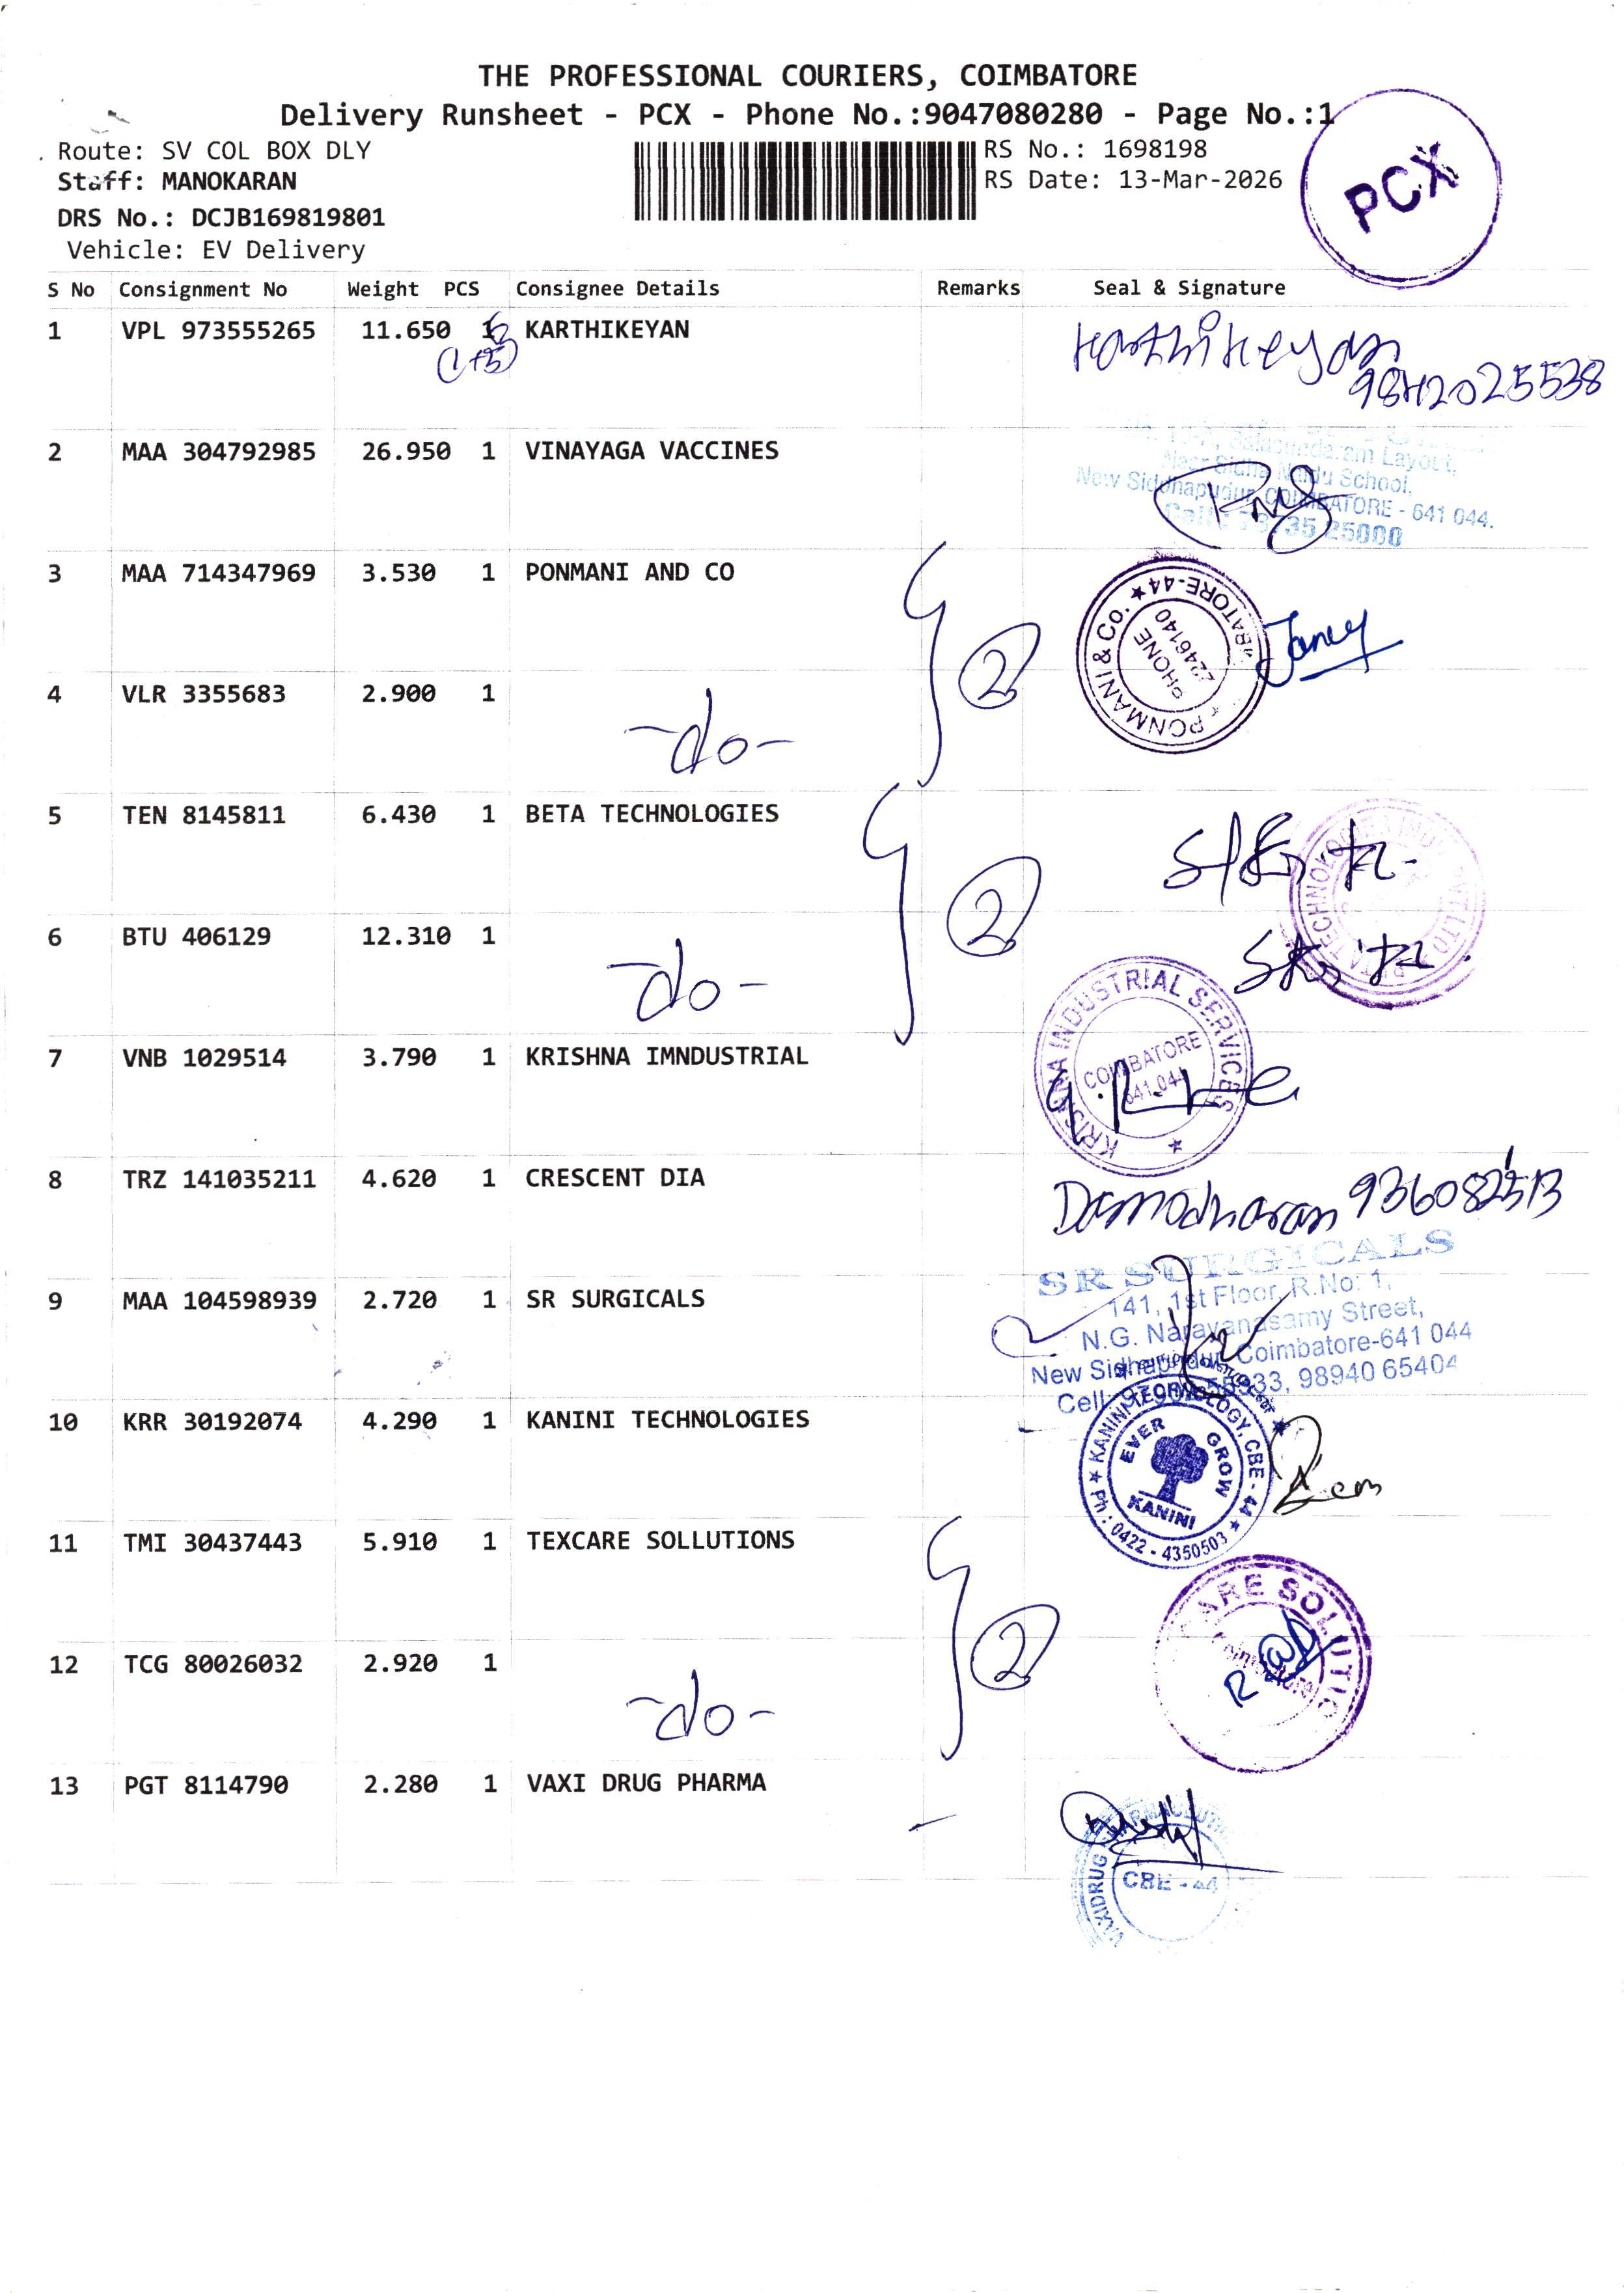 THE PROFESSIONAL COURIERS, COIMBATORE
Delivery Runsheet - PCX - Phone No.:9047080280 - Page No.:1
Route: SV COL BOX DLY
Staff: MANOKARAN
DRS No.: DCJB169819801
Vehicle: EV Delivery
RS No.: 1698198
RS Date: 13-Mar-2026
PCX
S No Consignment No Weight PCS Consignee Details Remarks Seal & Signature
1 VPL 973555265 11.650 KARTHIKEYAN
(1+5)
Karthikeyan
9842025538
2 MAA 304792985 26.950 1 VINAYAGA VACCINES
Balasundaram Layout,
Near Sidha Naidu School,
New Siddhapudur, COIMBATORE - 641 044.
3 MAA 714347969 3.530 1 PONMANI AND CO
2
PONMANI & CO. ★ COIMBATORE-44 ★
PHONE
2246140
Jancy
4 VLR 3355683 2.900 1
-do-
5 TEN 8145811 6.430 1 BETA TECHNOLOGIES
2
6 BTU 406129 12.310 1
-do-
7 VNB 1029514 3.790 1 KRISHNA IMNDUSTRIAL
KRISHNA INDUSTRIAL SERVICES ★
COIMBATORE
641 044
8 TRZ 141035211 4.620 1 CRESCENT DIA
Damodharan
9 MAA 104598939 2.720 1 SR SURGICALS
SR SURGICALS
141, 1st Floor, R.No: 1,
N.G. Narayanasamy Street,
New Sidhapudur, Coimbatore-641 044
Cell: 98940 65404
10 KRR 30192074 4.290 1 KANINI TECHNOLOGIES
★ KANINI TECHNOLOGY, CBE - 44 ★
EVER GROW
KANINI
Ph : 0422 - 4350503
11 TMI 30437443 5.910 1 TEXCARE SOLLUTIONS
2
CARE SOLUTIO
12 TCG 80026032 2.920 1
-do-
13 PGT 8114790 2.280 1 VAXI DRUG PHARMA
VAXIDRUG PHARMACEUTI
CBE - 44